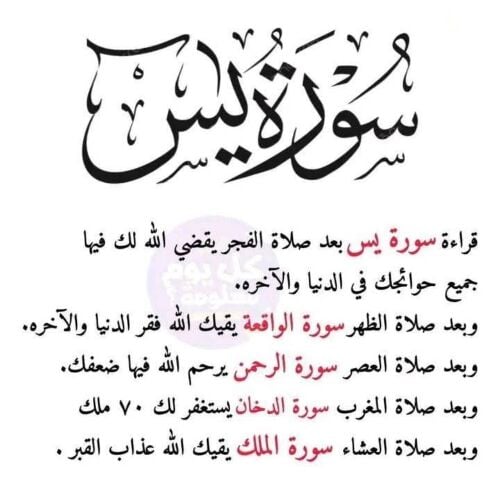 سُورَة يس
قراءة سورة يس بعد صلاة الفجر يقضي الله لك فيها
جميع حوائجك في الدنيا والآخره.
وبعد صلاة الظهر سورة الواقعة يقيك الله فقر الدنيا والآخره.
وبعد صلاة العصر سورة الرحمن يرحم الله فيها ضعفك.
وبعد صلاة المغرب سورة الدخان يستغفر لك ٧٠ ملك
وبعد صلاة العشاء سورة الملك يقيك الله عذاب القبر .
كل يوم
معلومة؟